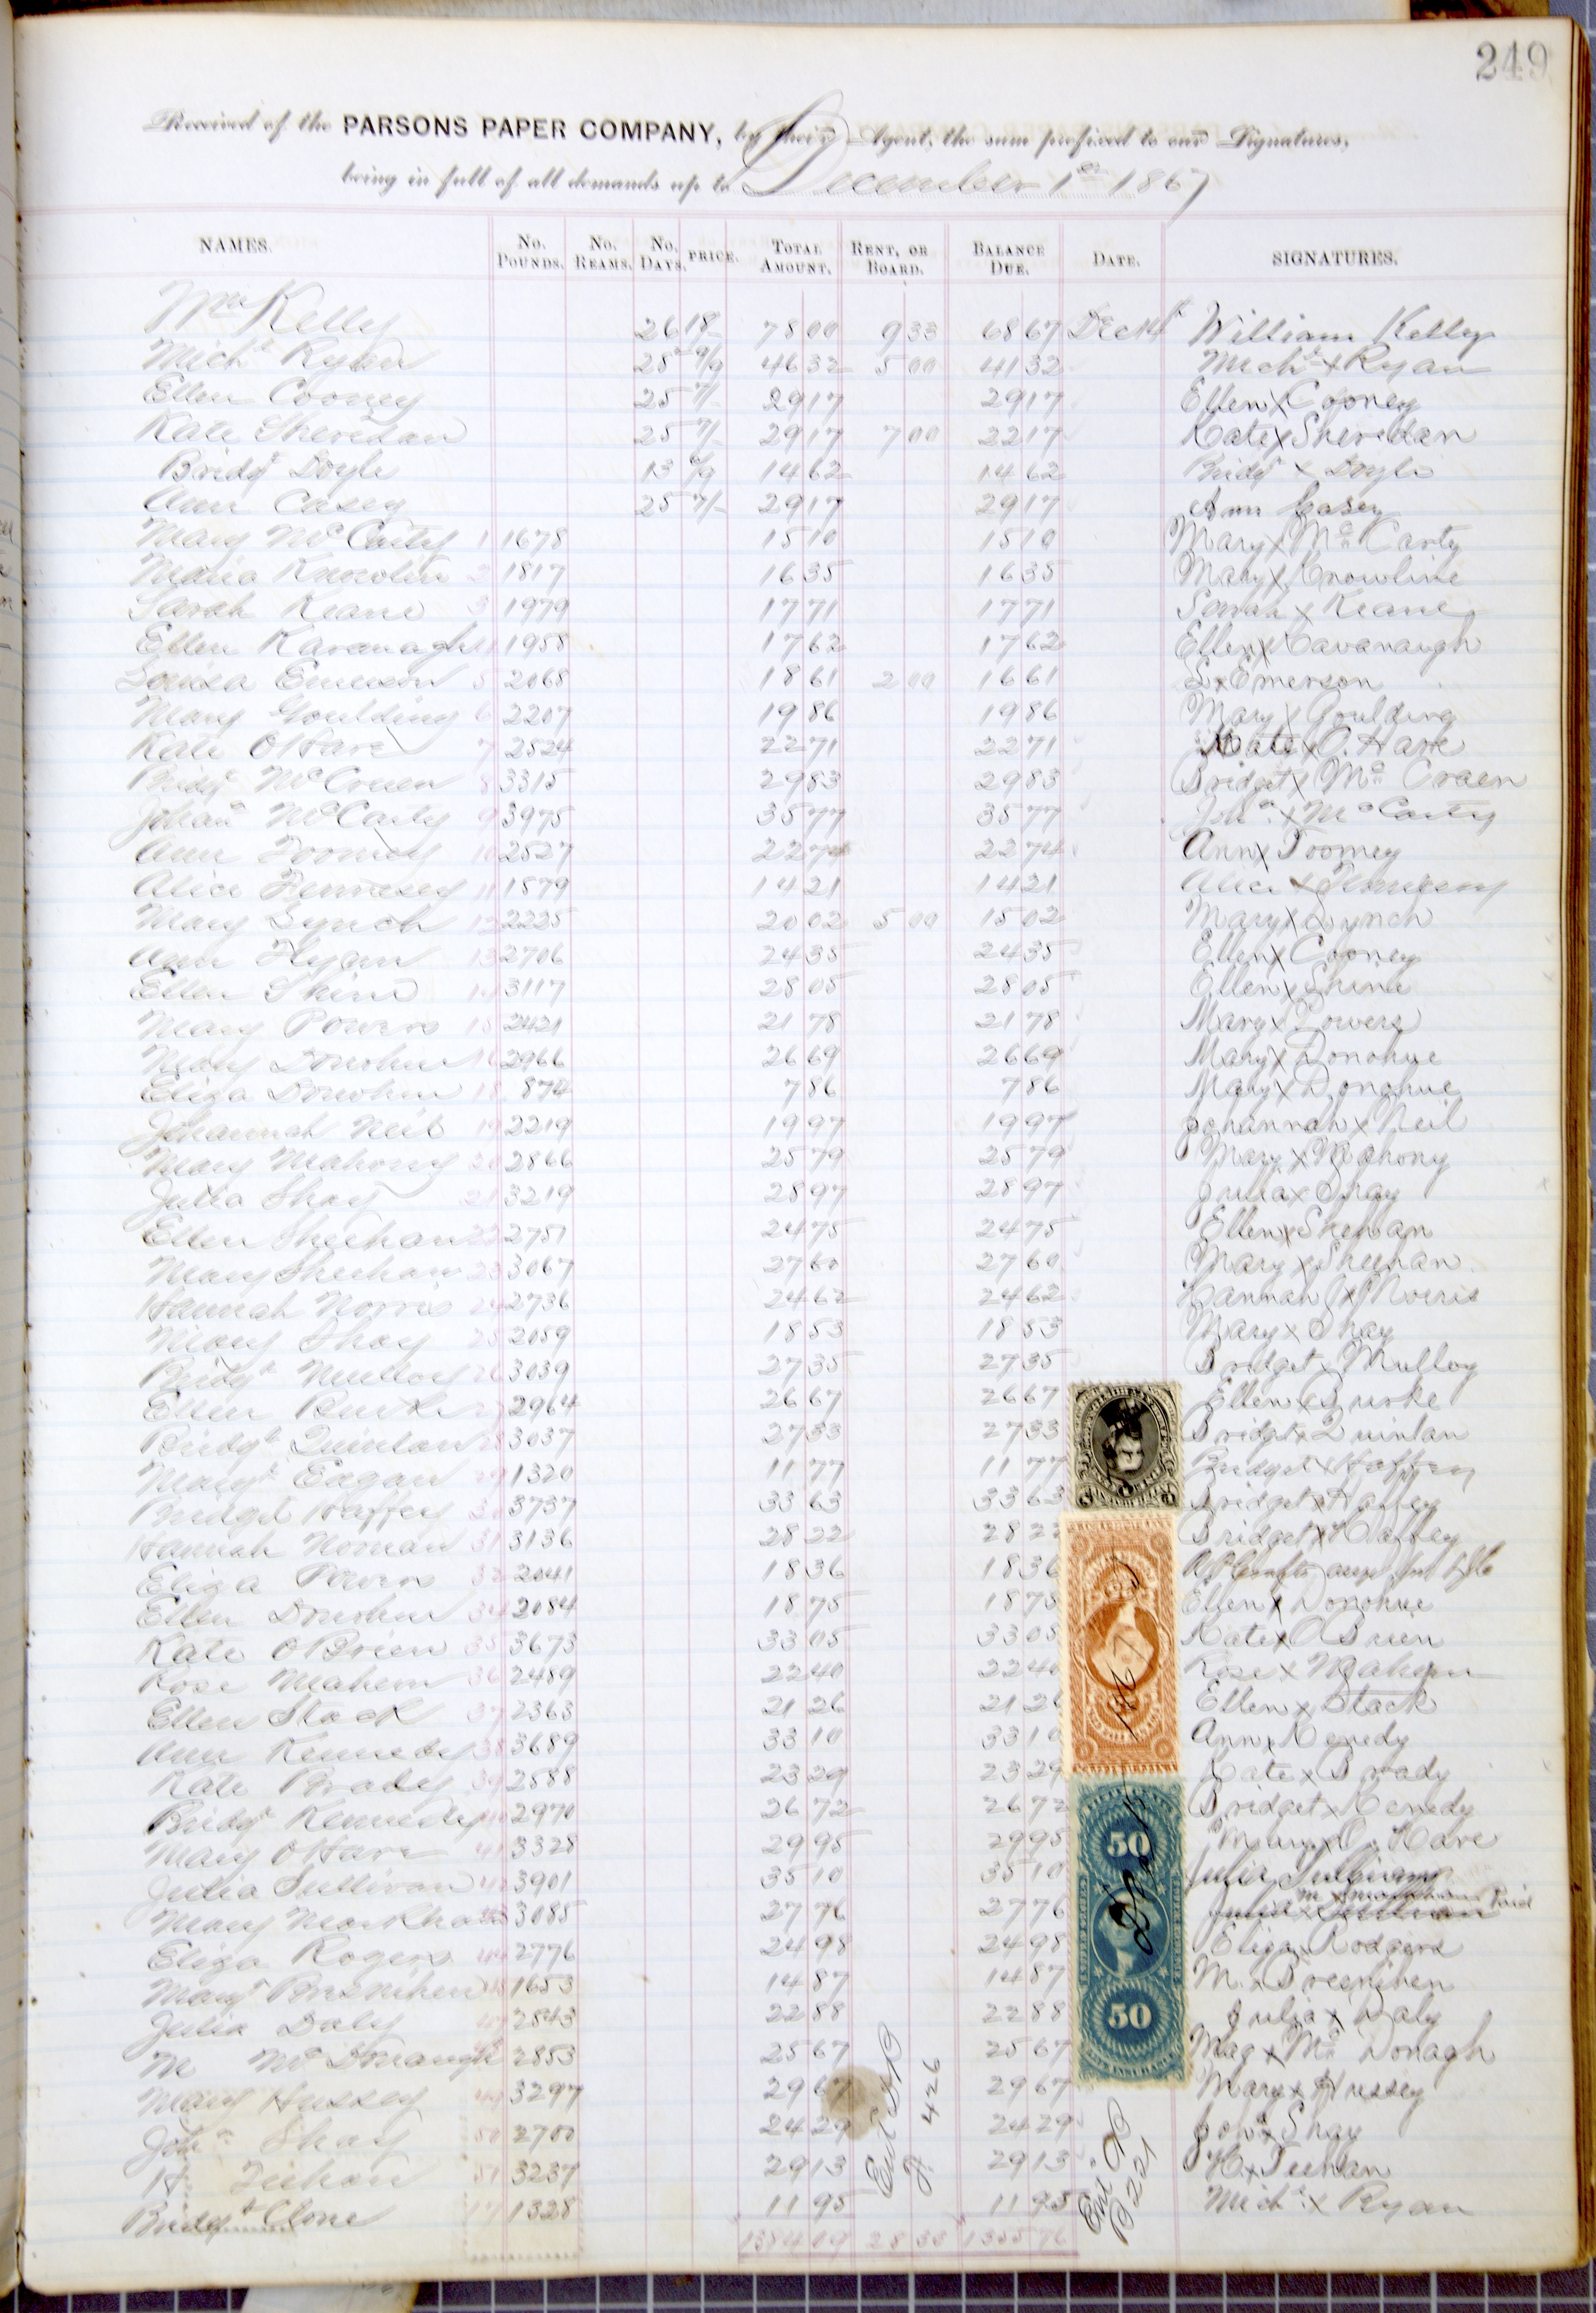 249
Received of the PARSONS PAPER COMPANY, by their Agent, the sum prefixed to our Signatures,
being in full of all demands up to December 1st 1867
NAMES. No. POUNDS. No. REAMS. No. DAYS. PRICE. TOTAL AMOUNT. RENT, OR BOARD. BALANCE DUE. DATE. SIGNATURES.
Wm Kelly 26 18/ 78 00 9 33 68 67 Dec 14 William Kelly
Micht Ryan 25 46 32 5 00 41 32 Micht x Ryan
Ellen Cooney 25 7/ 29 17 29 17 Ellen x Cooney
Kate Sheridan 25 7/ 29 17 7 00 22 17 Kate x Sheridan
Bridgt Doyle 13 14 62 14 62 Bridgt x Doyle
Ann Casey 25 7/ 29 17 29 17 Ann Casey
Mary McCarty 1 1678 15 10 15 10 Mary x Mc Carty
Maria Knowlin 2 1817 16 35 16 35 Mary x Knowline
Sarah Keane 3 1979 17 71 17 71 Sarah x Keane
Ellen Kavanagh 4 1958 17 62 17 62 Ellen x Cavanaugh
Louisa Emerson 5 2068 18 61 2 00 16 61 L x Emerson
Mary Goulding 6 2207 19 86 19 86 Mary x Goulding
Kate O'Hare 7 2524 22 71 22 71 Kate x O. Hare
Bridgt McCruen 8 3315 29 83 29 83 Bridget x Mc Craen
Johan McCarty 9 3975 35 77 35 77 Joha x McCarty
Ann Toomey 10 2527 22 74 22 74 Ann x Toomey
Alice Hennesey 11 1579 14 21 14 21 Alice x
Mary Lynch 12 2225 20 02 5 00 15 02 Mary x Lynch
Ann Flynn 13 2706 24 35 24 35 Ellen x Cooney
Ellen Shine 14 3117 28 05 28 05 Ellen x Shine
Mary Powers 15 2421 21 78 21 78 Mary x Powers
Mary Donohue 16 2966 26 69 26 69 Mary x Donohue
Eliza Donohue 18 874 7 86 7 86 Mary x Donohue
Johannah Neil 19 2219 19 97 19 97 Johannah x Neil
Mary Mahony 20 2866 25 79 25 79 Mary x Mahony
Julia Shay 21 3219 28 97 28 97 Julia x Shay
Ellen Sheehan 22 2751 24 75 24 75 Ellen x Sheehan
Mary Sheehan 23 3067 27 60 27 60 Mary x Sheehan
Hannah Norris 24 2736 24 62 24 62 Hannah x Norris
Mary Shay 25 2059 18 53 18 53 Mary x Shay
Bridgt Mulloy 26 3039 27 35 27 35 Bridget x Mulloy
Ellen Burke 27 2964 26 67 26 67 Ellen x Burke
Bridgt Quinlan 28 3037 27 33 27 33 Bridget x Quinlan
Margt Eagan 29 1320 11 77 11 77 Bridget x Haffey
Bridget Haffey 30 3737 33 63 33 63 Bridget x Haffey
Hannah Noman 31 3136 28 22 28 22 Bridget x Haffey
Eliza Powers 32 2041 18 36 18 36
Ellen Donohue 34 2084 18 75 18 75 Ellen x Donohue
Kate O'Brien 35 3673 33 05 33 05 Kate x O Brien
Rose Mahern 36 2489 22 40 22 40 Rose x Mahern
Ellen Stack 37 2363 21 26 21 26 Ellen x Stack
Ann Kennedy 38 3689 33 10 33 10 Ann x Kenedy
Kate Brady 39 2588 23 29 23 29 Kate x Brady
Bridgt Kennedy 40 2970 26 72 26 72 Bridget x Kenedy
Mary O'Hare 41 3328 29 95 29 95 Mary x O. Hare
Julia Sullivan 42 3901 35 10 35 10 Julia Sullivan
Mary Markham 43 3085 27 76 27 76 M x Markham Paid
Eliza Rogers 44 2776 24 98 24 98 Eliza x Rodgers
Margt Bresnihen 1653 14 87 14 87 M. x Bresnihen
Julia Daly 2543 22 88 22 88 Julia x Daly
M McDonaugh 2853 25 67 25 67 Mag x Mc Donagh
Mary Hussey 49 3297 29 67 29 67 Mary x Hussey
Joha Shay 50 2700 24 29 24 29 Joha x Shay
H. Teehan 51 3237 29 13 29 13 H x Teehan
Bridgt Clone 17 1328 11 95 11 95 Micht x Ryan
1384 09 28 33 1355 76
Ent DB
J 426
Ent DB
P 221
1867
50
50